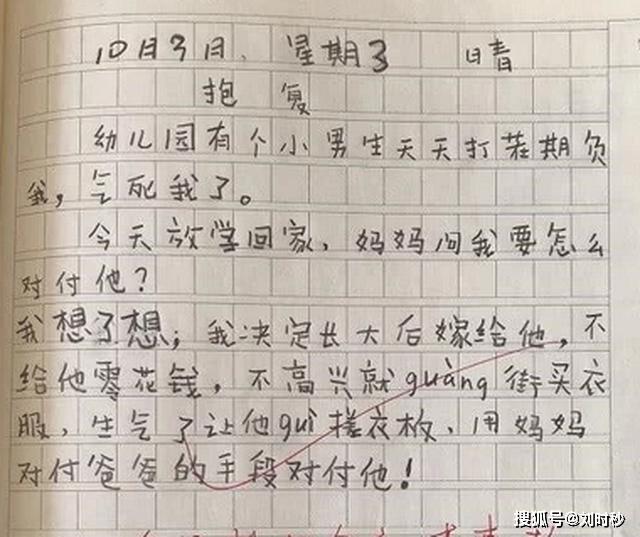 10月3日, 星期3 晴
抱 复
幼儿园有个小男生天天打茬期负
我，气死我了。
今天放学回家，妈妈问我要怎么
对付他？
我想了想；我决定长大后嫁给他，不
给他零花钱，不高兴就guàng街买衣
服，生气了让他guì搓衣板、用妈妈
对付爸爸的手段对付他！
搜狐号@刘时秒